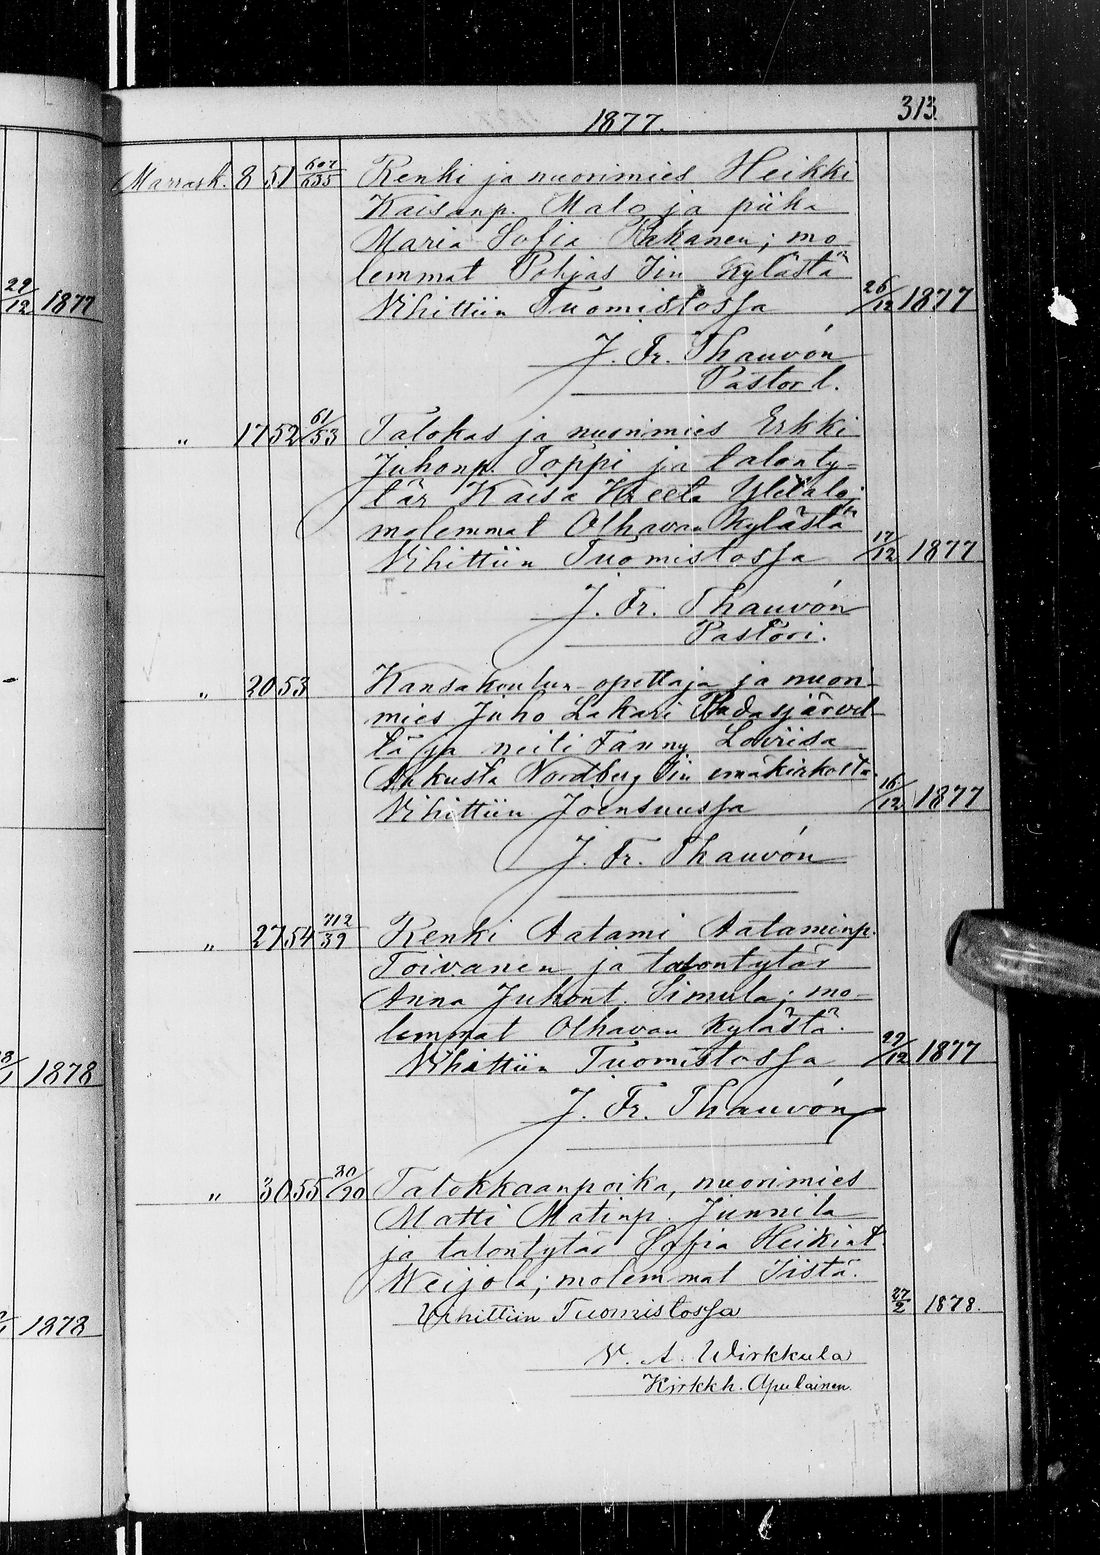 1877.
313.
Marrask. 8 51 607/635 Renki ja nuorimies Heikki
Kaisanp. Malo ja piika
Maria Sofia Kakanen; mo
lemmat Pohjas Iin kylästä
Vihittiin Tuomistossa 26/12 1877
J. Fr. Thauvón
Pastori.
„ 17 52 61/53 Talokas ja nuorimies Erkki
Juhonp. Toppi ja talonty-
tär Kaisa Kreeta Ylitalo;
molemmat Olhavan kylästä
Vihittiin Tuomistossa 17/12 1877
J. Fr. Thauvón
Pastori.
„ 20 53 Kansakoulun opettaja ja nuori-
mies Juho Lakari Padasjärvel-
tä ja neiti Fanny Lowiisa
Aukusta Nordberg Iin emäkirkolta
Vihittiin Joensuussa 16/12 1877
J. Fr. Thauvón
„ 27 54 712/39 Renki Aatami Aataminp.
Toivanen ja talontytär
Anna Juhont. Simula; mo-
lemmat Olhavan kylästä.
Vihittiin Tuomistossa 22/12 1877
J. Fr. Thauvón
„ 30 55 30/20 Talokkaanpoika, nuorimies
Matti Matinp. Junnila
ja talontytär Sofia Heikint.
Weijola; molemmat Iistä.
Vihittiin Tuomistossa 27/2 1878.
V. A. Wirkkula
Kirkkh. Apulainen.
22/12 1877
1878
1878